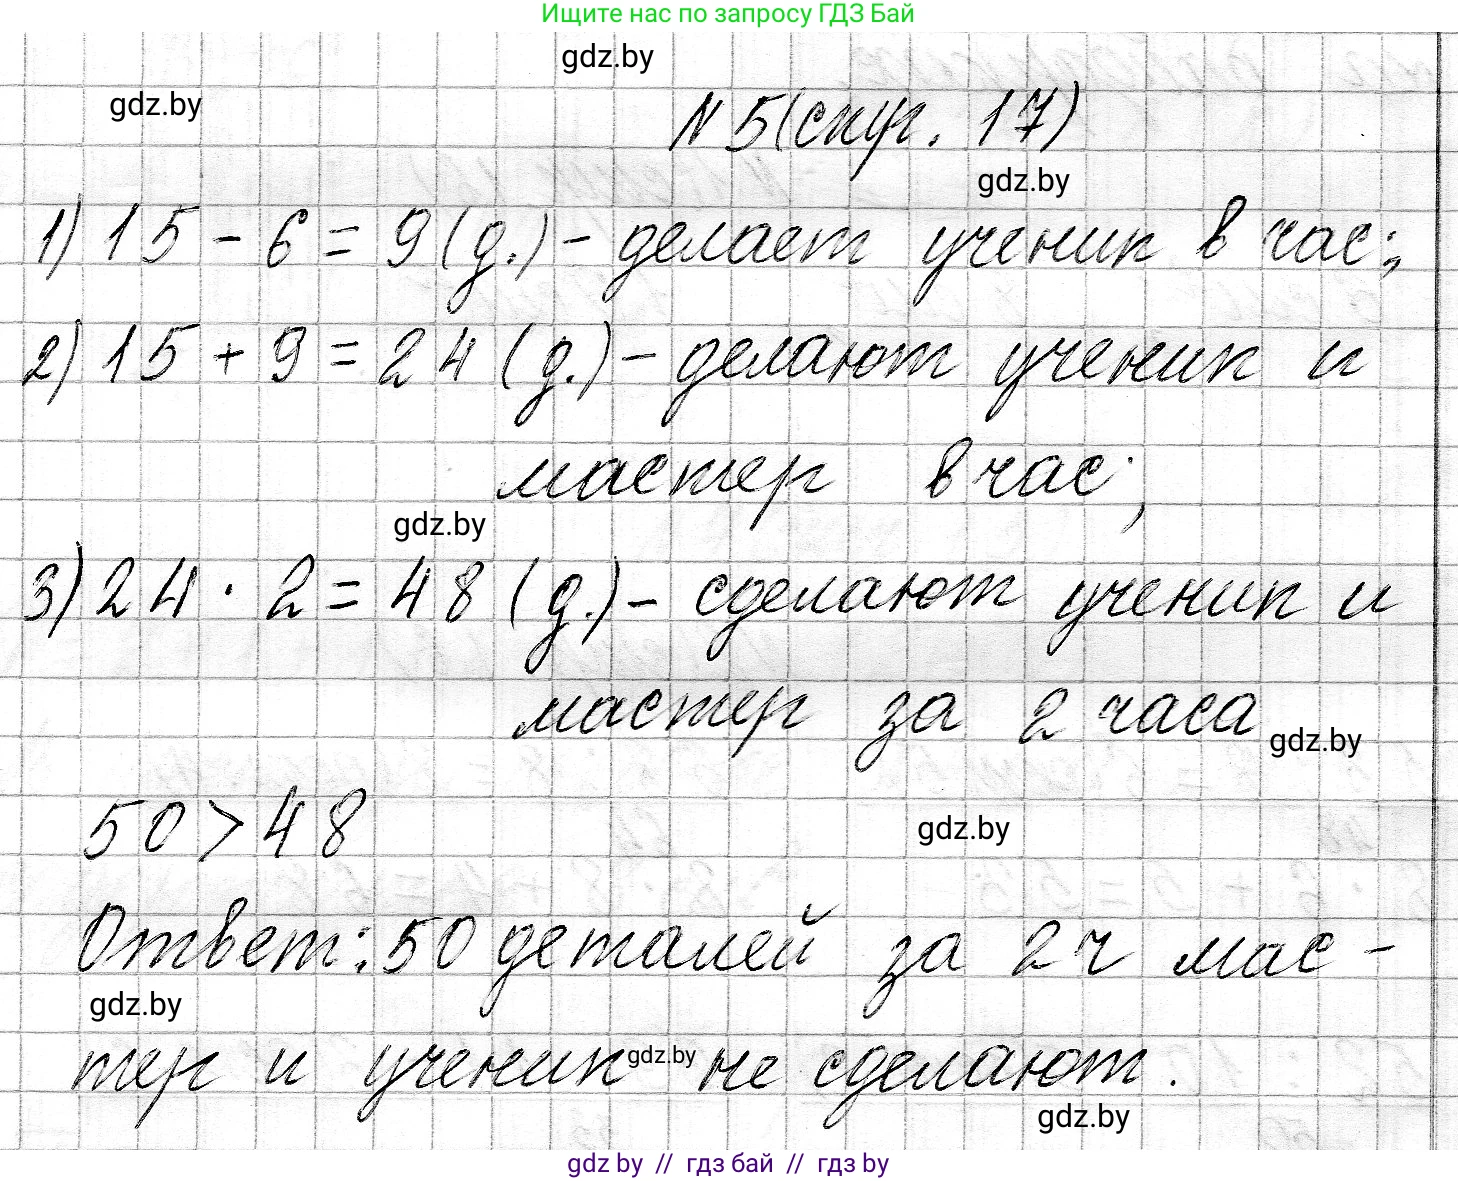 Ищите нас по запросу ГДЗ Бай
gdz.by
gdz.by
N 5 (стр. 17)
gdz.by
1) 15 - 6 = 9 (д.) - делает ученик в час;
2) 15 + 9 = 24 (д.) - делают ученик и
мастер в час;
gdz.by
3) 24 · 2 = 48 (д.) - сделают ученик и
мастер за 2 часа
gdz.by
50 > 48
gdz.by
Ответ: 50 деталей за 2 ч мас-
gdz.by
тер и ученик не сделают.
gdz.by
gdz.by
gdz by // гдз бай // гдз by